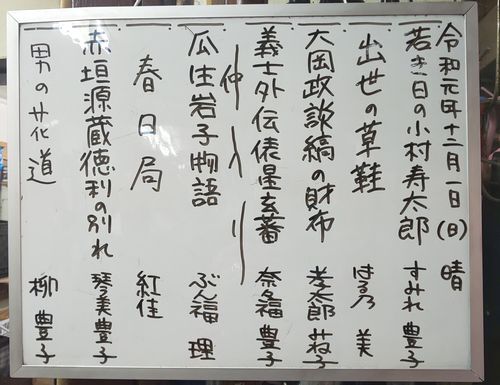 令和元年十二月一日(日) 晴
若き日の小村寿太郎 すみれ 豊子
出世の草鞋 はる乃 美
大岡政談縞の財布 孝太郎 ね子
義士外伝俵星玄蕃 奈々福 豊子
仲入り
瓜生岩子物語 ぶん福 理
春日局 紅佳
赤垣源蔵徳利の別れ 琴美 豊子
男の花道 柳 豊子